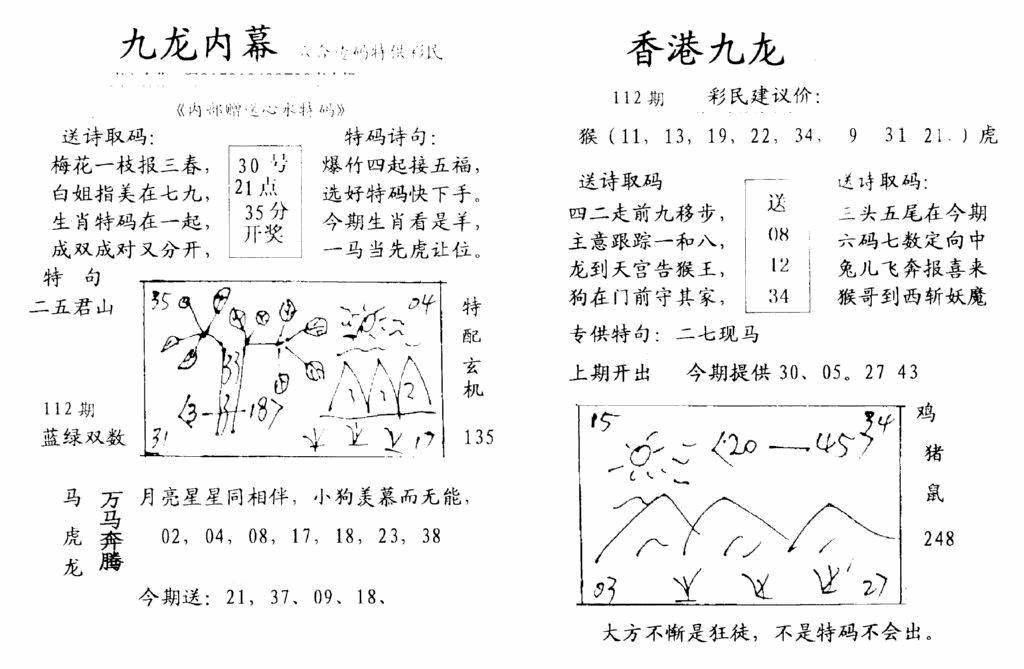 九龙内幕
码特供彩民
《内部赠送心水特码》
送诗取码：
梅花一枝报三春，
白姐指美在七九，
生肖特码在一起，
成双成对又分开，
30 号
21点
35分
开奖
特码诗句：
爆竹四起接五福，
选好特码快下手。
今期生肖看是羊，
一马当先虎让位。
特 句
二五君山
112期
蓝绿双数
35
04
33
〈3—8—18〉
1 1 2
31
17
特配玄机
135
马虎龙
万马奔腾
月亮星星同相伴，小狗羡慕而无能，
02，04，08，17，18，23，38
今期送：21，37、09、18、
香港九龙
112期 彩民建议价：
猴（11，13，19，22，34， 9 31 21.）虎
送诗取码
四二走前九移步，
主意跟踪一和八，
龙到天宫告猴王，
狗在门前守其家，
送
08
12
34
送诗取码：
三头五尾在今期
六码七数定向中
兔儿飞奔报喜来
猴哥到西斩妖魔
专供特句：二七现马
上期开出 今期提供30、05。27 43
15
34
〈20—45〉
03
27
鸡
猪
鼠
248
大方不惭是狂徒，不是特码不会出。